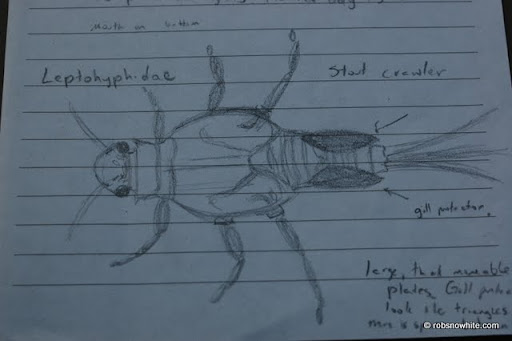 Mouth on bottom
Leptohyphidae
Stout crawler
gill protector.
large, moveable
plates, Gill
look like triangles
is
© robsnowhite.com